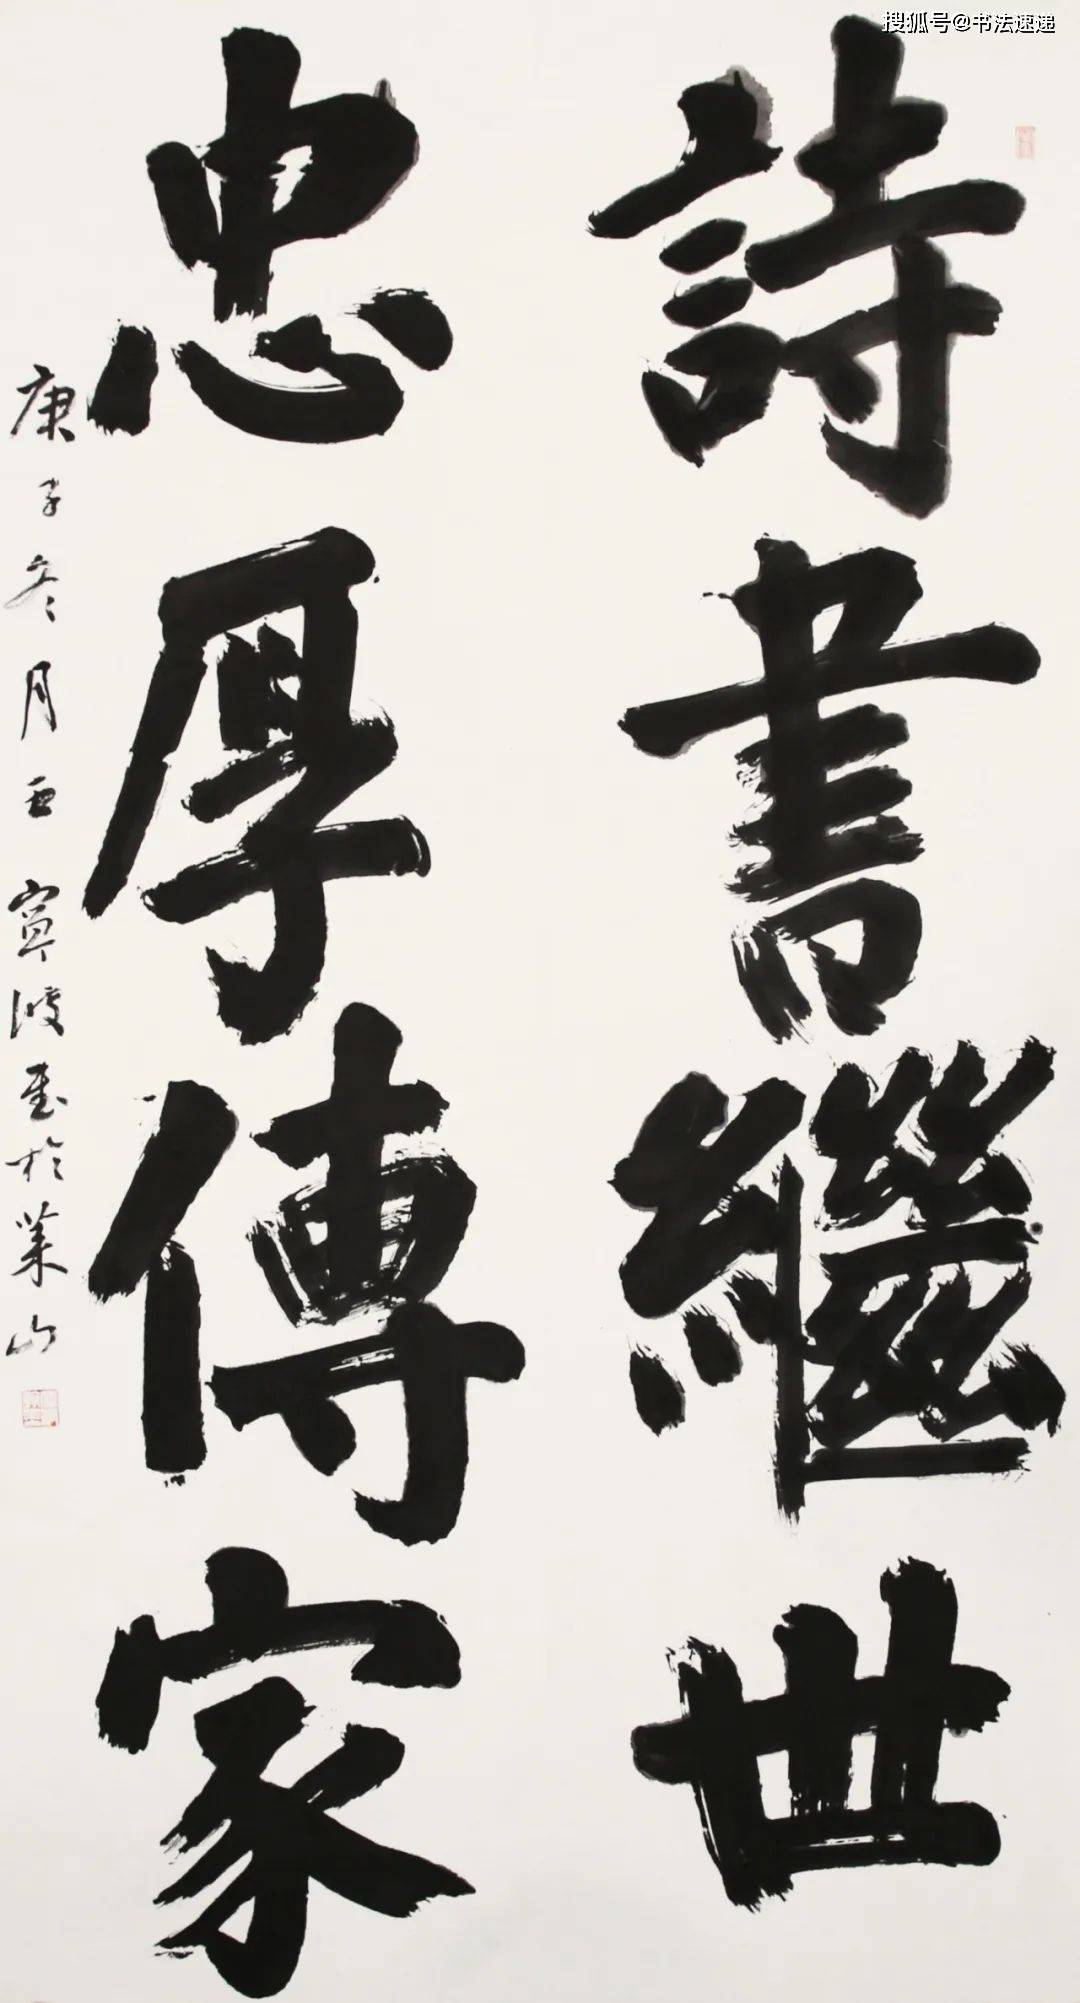 搜狐号@书法速递
詩書繼世
忠厚傳家
庚子冬月
波書於業山